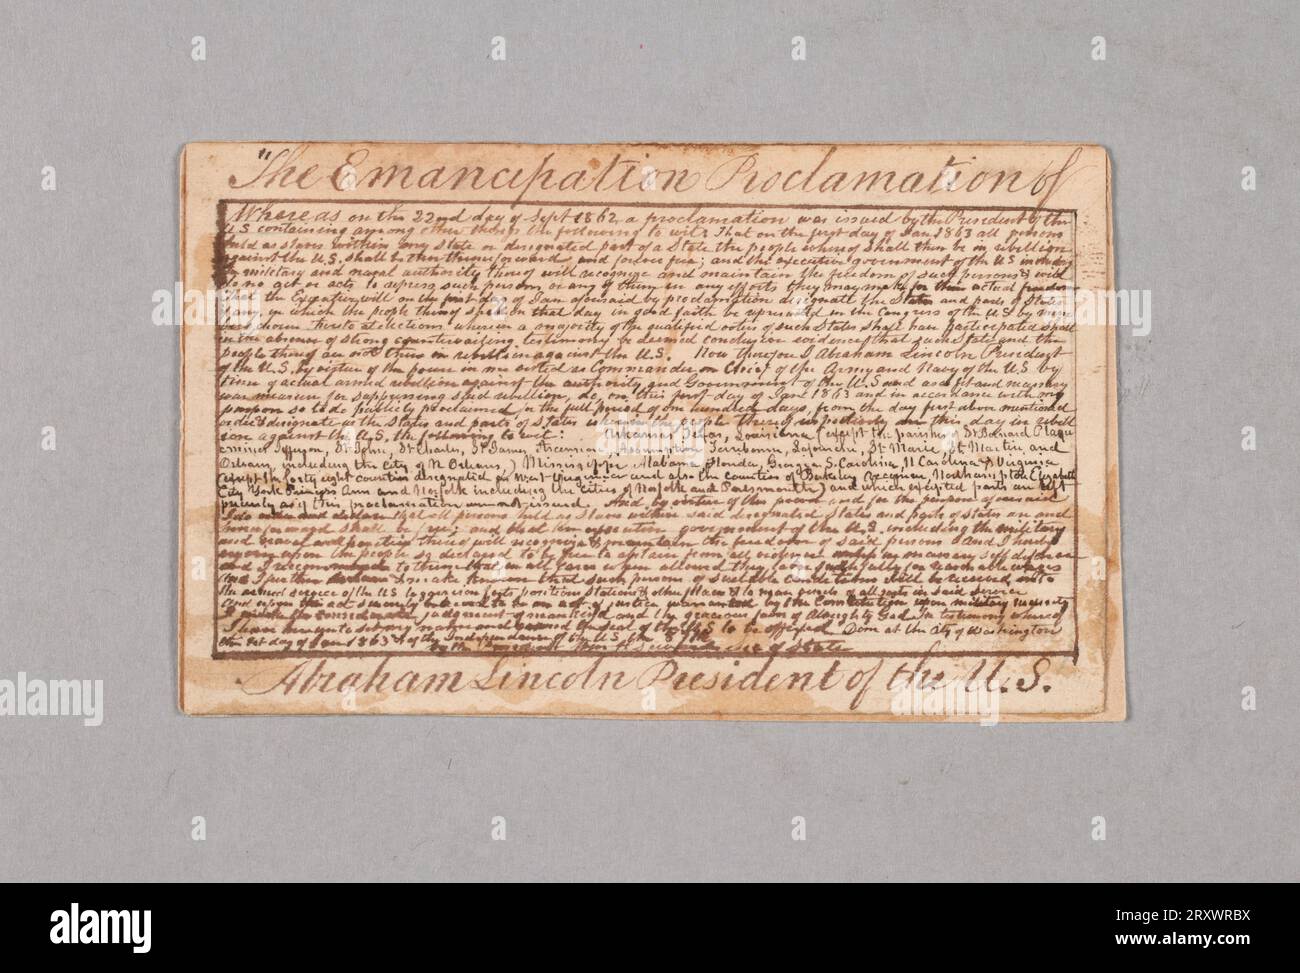 "The Emancipation Proclamation of
Whereas on the 22nd day of Sept 1862, a proclamation was issued by the President of the
U.S containing among other things the following to wit: That on the first day of Jan 1863 all persons
held as slaves within any State or designated part of a State the people whereof shall then be in rebellion
against the U.S. shall be then thenceforward and forever free; and the executive government of the US including
the military and naval authority thereof will recognize and maintain the freedom of such persons & will
do no act or acts to repress such persons or any of them in any efforts they may make for their actual freedom
That the Executive will on the first day of Jan aforesaid by proclamation designate the States and parts of States
if any, in which the people thereof shall on that day in good faith be represented in the Congress of the U.S by
chosen thereto at elections wherein a majority of the qualified voters of such States shall have participated shall
in the absence of strong countervailing testimony be deemed conclusive evidence that such State and the
people thereof are not then in rebellion against the U.S. Now therefore I Abraham Lincoln President
of the U.S. by virtue of the power in me vested as Commander in Chief of the Army and Navy of the U.S by
time of actual armed rebellion against the authority and Government of the U.S and as a fit and necessary
war measure for suppressing said rebellion, do, on this first day of Jan 1863 and in accordance with my
purpose so to do publicly proclaimed for the full period of one hundred days, from the day first above mentioned
order & designate as the States and parts of States wherein the people thereof respectively are this day in rebell
ion against the U.S, the following to wit: Arkansas Texas, Louisiana (except the parishes of St Bernard Plaqu
emines Jefferson, St John, St Charles, St James, Ascension, Assumption Terrebonne, Lafourche, St Marie, St Martin and
Orleans, including the City of N Orleans,) Mississippi, Alabama Florida, Georgia S. Carolina, N Carolina & Virginia
(except the forty eight counties designated as West Virginia and also the counties of Berkeley Accomac Northampton Elizabeth
City York Princess Ann and Norfolk including the cities of Norfolk and Portsmouth) and which excepted parts are left
precisely as if this proclamation were not issued. And by virtue of this power and for the purpose aforesaid
I do order and declare that all persons held as slaves within said designated States and parts of states are and
henceforward shall be free; and that the executive government of the U.S, including the military
and naval authorities thereof will recognize & maintain the freedom of said persons And I hereby
enjoin upon the people so declared to be free to abstain from all violence unless in necessary self defence
and I recommend to them that in all cases when allowed they labor faithfully for reasonable wages
And I further declare & make known that such persons of suitable conditions will be received into
the armed service of the US to garrison forts positions stations & other places & to man vessels of all sorts in said service
And upon this act sincerely believed to be an act of justice, warranted by the Constitution upon military necessity
I invoke the considerate judgment of mankind and the gracious favor of Almighty God In testimony whereof
I have hereunto set my name and caused the seal of the U.S to be affixed Done at the City of Washington
the 1st day of Jan 1863 & of the Independence of the U.S the
by the President Wm H Seward Sec of State
Abraham Lincoln President of the U.S.
alamy
Image ID: 2RXWRBX
www.alamy.com